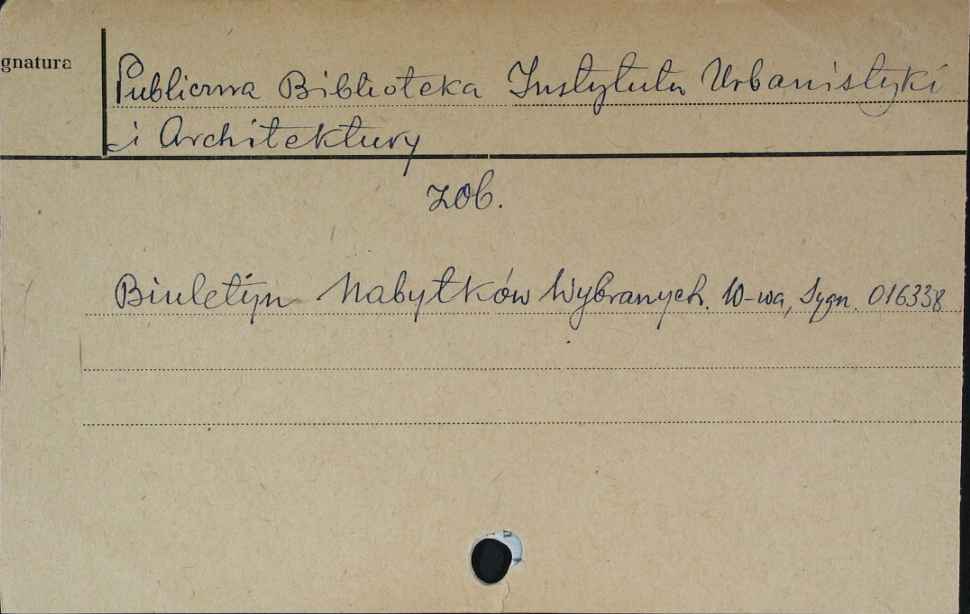 gnatura
Publiczna Biblioteka Instytutu Urbanistyki
i Architektury
zob.
Biuletyn Nabytków Wybranych. W-wa, Sygn. 016338